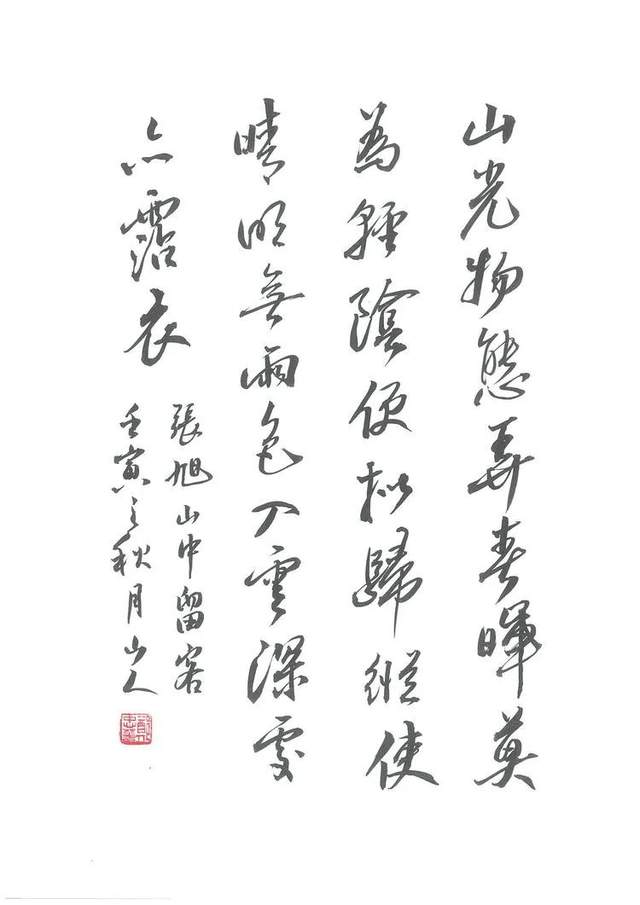 山光物態弄春暉莫
為輕陰便拟歸縱使
晴明無雨色入雲深處
亦霑衣
張旭山中留客
壬寅之秋月山人